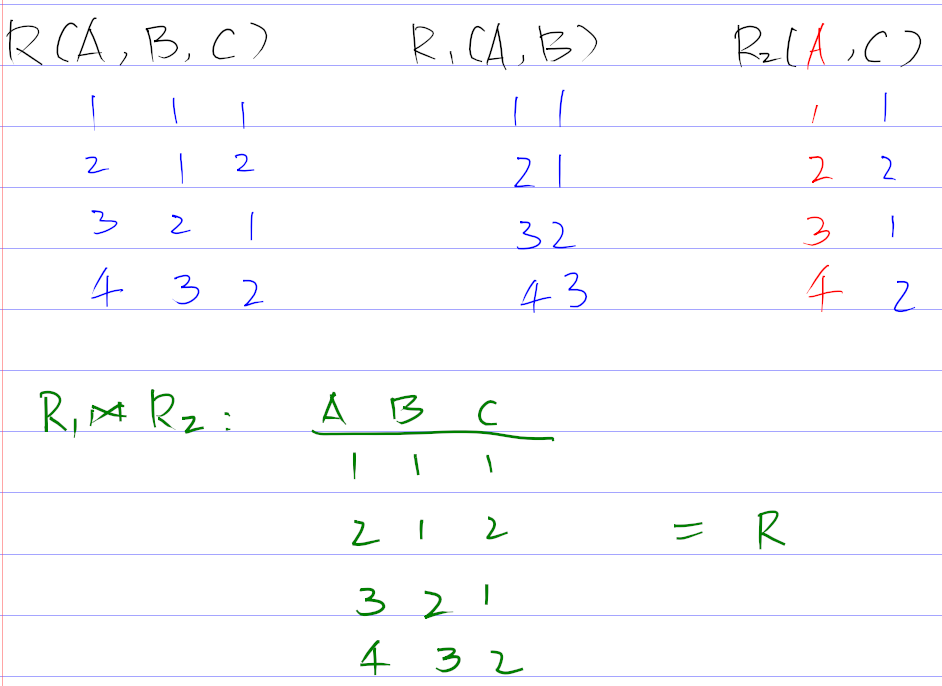 R(A, B, C) R₁(A, B) R₂(A, C)
1 1 1 1 1 1 1
2 1 2 2 1 2 2
3 2 1 3 2 3 1
4 3 2 4 3 4 2
R₁ ⋈ R₂ : A B C
1 1 1
2 1 2 = R
3 2 1
4 3 2